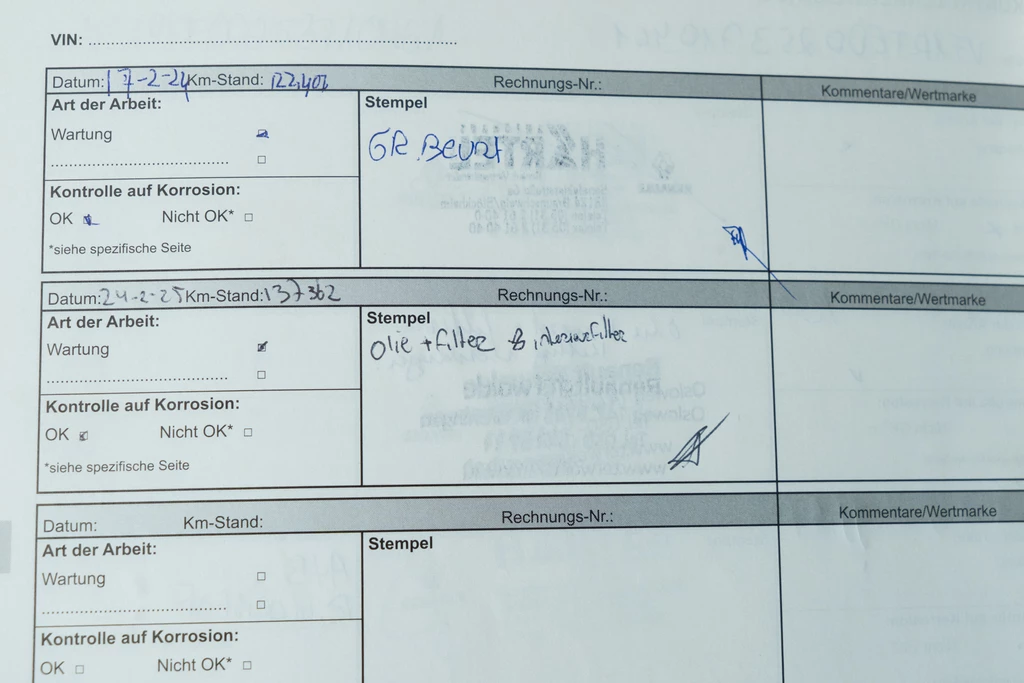 VIN: ................................................
Datum: 17-2-24 Km-Stand: 122,402 Rechnungs-Nr.: Kommentare/Wertmarke
Art der Arbeit: Stempel
Wartung GR Beurt
Kontrolle auf Korrosion:
OK Nicht OK*
*siehe spezifische Seite
Datum: 24-2-25 Km-Stand: 137362 Rechnungs-Nr.: Kommentare/Wertmarke
Art der Arbeit: Stempel
Wartung Olie + filter & interieurfilter
Kontrolle auf Korrosion:
OK Nicht OK*
*siehe spezifische Seite
Datum: Km-Stand: Rechnungs-Nr.: Kommentare/Wertmarke
Art der Arbeit: Stempel
Wartung
Kontrolle auf Korrosion:
OK Nicht OK*